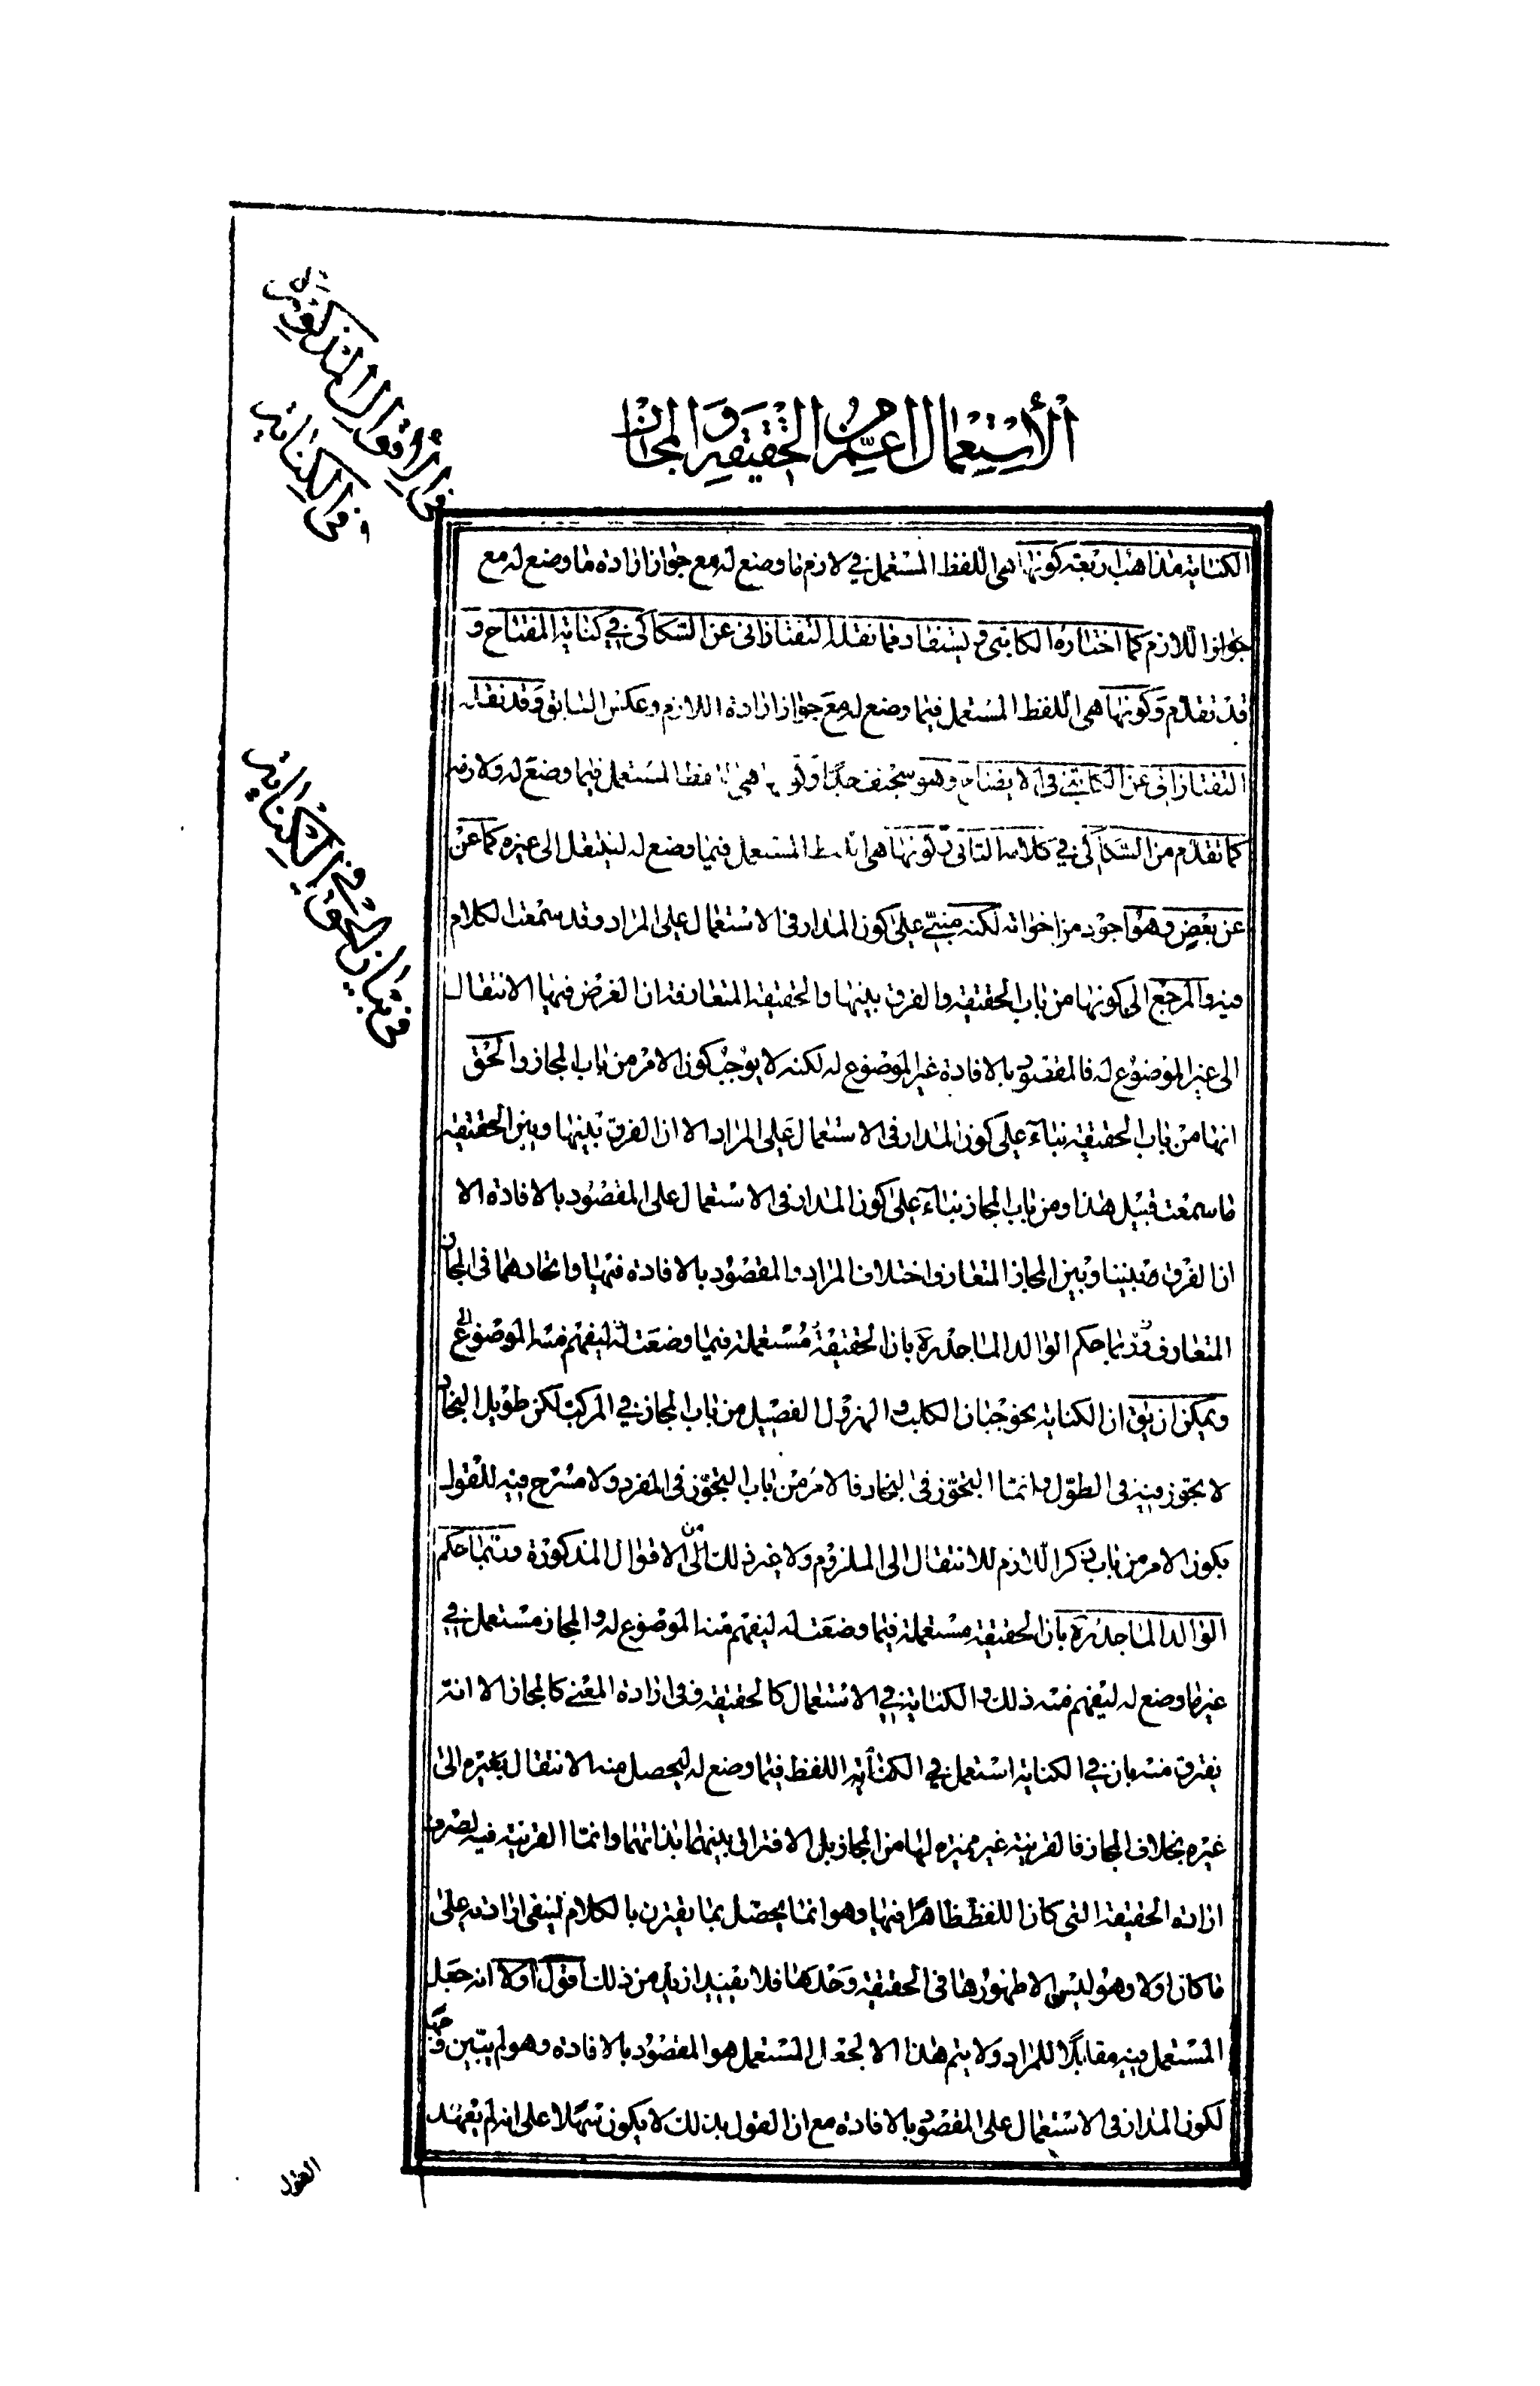 الاستعمال اعم من الحقيقة والمجاز
في الاقوال المذكورة
في الكناية
في بيان الحق في الكناية
الكناية مذاهب اربعة كونها هى اللفظ المستعمل في لازم ما وضع له مع جواز ارادة ما وضع له مع
جواز اللازم كما اختاره الكاتبى و يستفاد مما نقله التفتازانى عن السّكاكى في كناية المفتاح و
قد تقدّم وكونها هى اللفظ المستعمل فيما وضع له مع جواز ارادة اللازم وعكس السّابق وقد نقله
التفتازانى عن الكاتبى فى الايضاح وهو سخيف جدّا وكونها هى اللفظ المستعمل فيما وضع له ولازمه
كما تقدّم من السّكاكى في كلامه الثانى وكونها هى اللفظ المستعمل فيما وضع له لينتقل الى غيره كما عن
عن بعض وهو اجود من اخواته لكنه مبنىّ على كون المدار فى الاستعمال على المراد وقد سمعت الكلام
فيه والمرجع الى كونها من باب الحقيقة والفرق بينها والحقيقة المتعارفة ان الغرض فيها الانتقال
الى غير الموضوع له فالمقصود بالافادة غير الموضوع له لكنه لا يوجب كون الامر من باب المجاز والحق
انها من باب الحقيقة بناء على كون المدار فى الاستعمال على المراد الا ان الفرق بينها وبين الحقيقة
ما سمعت قبيل هذا ومن باب المجاز بناء على كون المدار فى الاستعمال على المقصود بالافادة الا
ان الفرق بينها وبين المجاز المتعارف اختلاف المراد والمقصود بالافادة فيها واتحادهما فى المجاز
المتعارف وربما حكم الوالد الماجد ره بان الحقيقة مستعملة فيما وضعت له ليفهم منه الموضوع له
ويمكن ان يق ان الكناية بنحو جبان الكلب و المهزول الفصيل من باب المجاز في المركب لكن طويل النجاد
لا تجوّز فيه فى الطول وانما التجوّز فى النجاد فالامر من باب التجوّز فى المفرد ولا مسرح فيه للقول
بكون الامر من باب ذكر اللازم للانتقال الى الملزوم ولا غير ذلك من الاقوال المذكورة وربّما حكم
الوالد الماجد ره بان الحقيقة مستعملة فيما وضعت له ليفهم منه الموضوع له والمجاز مستعمل في
غير ما وضع له ليفهم منه ذلك والكناية في الاستعمال كالحقيقة وفى ارادة المعنى كالمجاز الا انّه
يفترق منه بان في الكناية استعمل في الكناية اللفظ فيما وضع له ليحصل منه الانتقال بغيره الى
غيره بخلاف المجاز فالقرينة غير مميزه لها من المجاز بل الافتراق بينهما بذاتهما وانما القرينة فيه لصرف
ارادة الحقيقة التى كان اللفظ ظاهرا فيها وهو انما يحصل بما يقترن بالكلام لينفى ارادته على
ما كان اولا وهو ليس الا ظهورها فى الحقيقة وحدها فلا يفيد ازيد من ذلك اقول اولا انه جعل
المستعمل فيه مقابلا للمراد ولا يتم هذا الا بجعل المستعمل هو المقصود بالافادة وهو لم يبين وجها
لكون المدار فى الاستعمال على المقصود بالافادة مع ان القول بذلك لا يكون سهلا على انه لم يعهد
القول